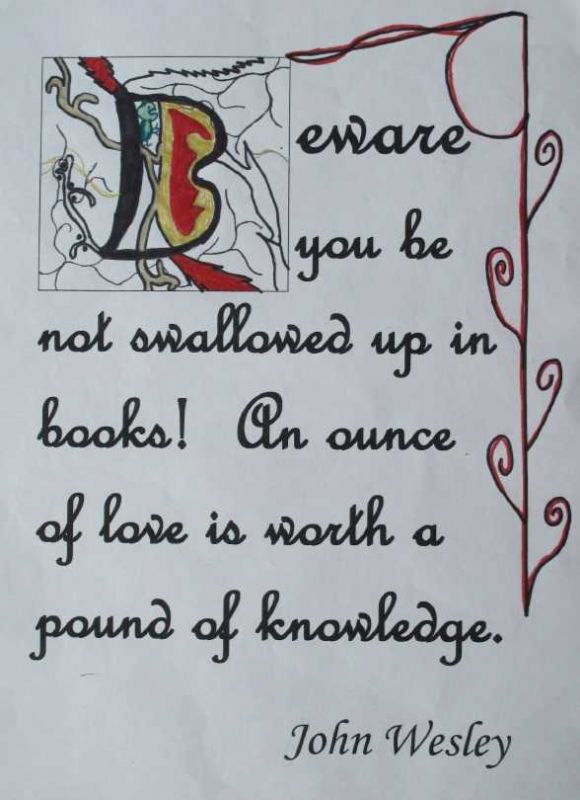 Beware
you be
not swallowed up in
books! An ounce
of love is worth a
pound of knowledge.
John Wesley